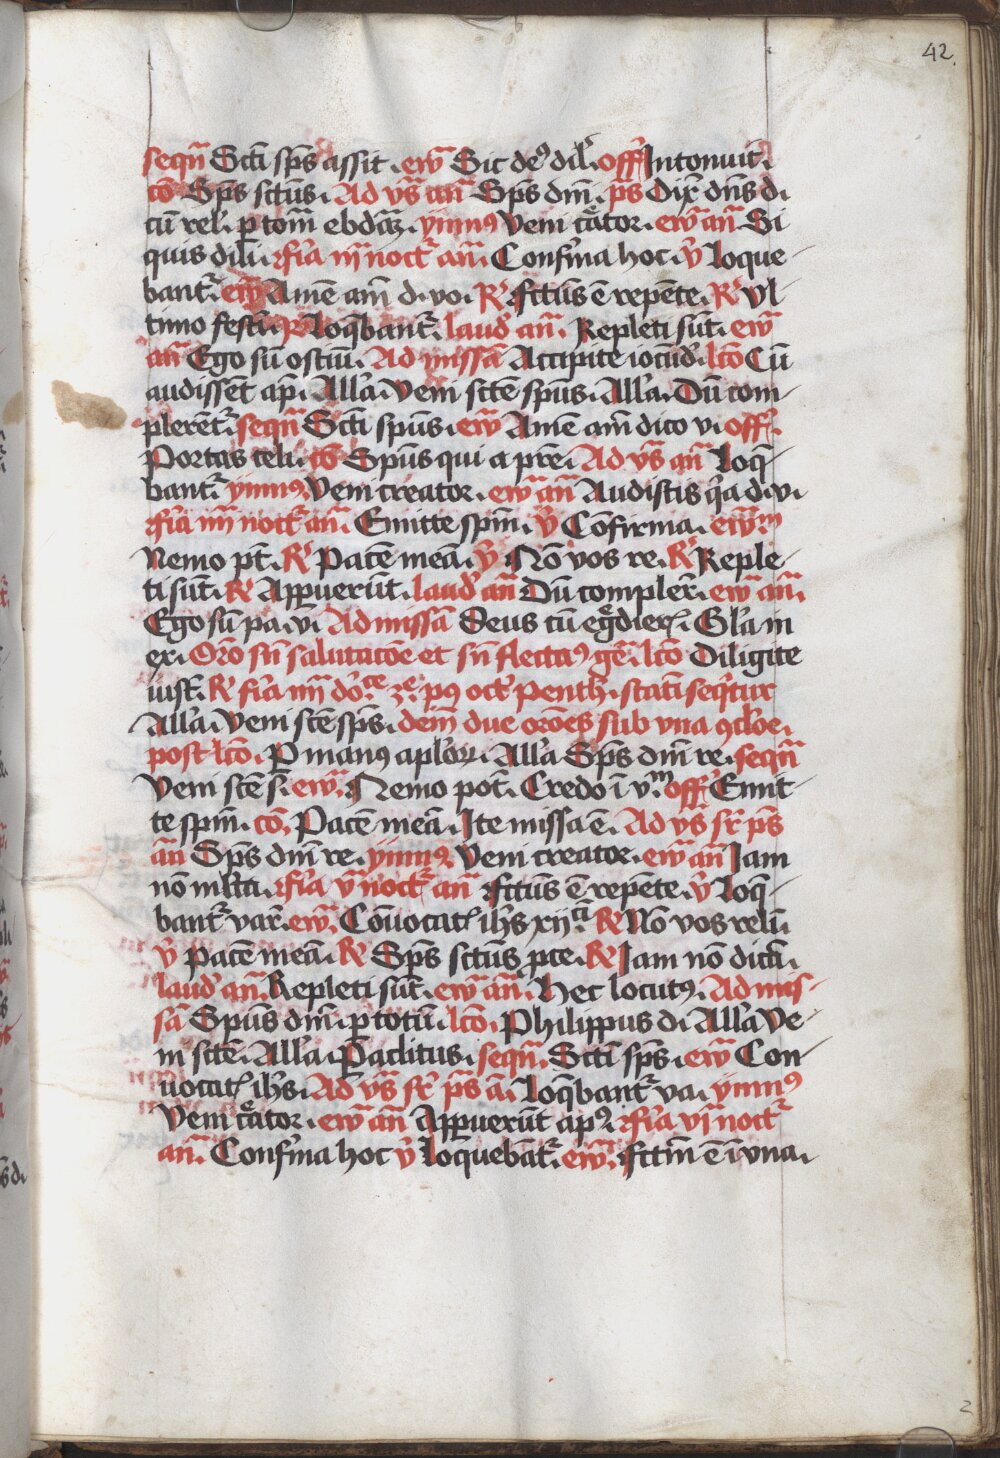 42
seqn̄ Scti sp̄s assit . ew̄ Sic deꝰ dil̓. off̓ Intonuit.
co Sp̄s sctūs. Ad vs̄ an̄ Sp̄s dnī. ps̄ Dix̄ dn̄s di
cū rel̓. ꝑ totm̄ ebdāꝫ. ymnꝰ Veni c̓ator. ew̄ an̄ Si
quis dili. rfia iii nocꝉ an̄. Confir̓ma hoc. v̓ loque
bant̄. ew̄ Amē am̄ d. vo. R̓ ffctūs ē repēte. R̓ Vl
timo festi. loq̄bant̄. laud̓ an̄. Repleti sūt. ew̄
an̄ Ego sū ostiū. Ad missā Accipite iocūd̓. lc̄o Cū
audissēt ap̄. All̓a Veni sctē spūs. All̓a. Dū com
plerēt̄. seqn̄ Scti spūs. ew̄ Amē am̄ dico vi off̓.
Portas celi. co Spūs qui a pr̄e. Ad vs̄ an̄ loq̄
bant̄. ymnꝰ. Veni creator. ew̄ an̄ Audistis q̓a d. vi
rfia iiii nocꝉ an̄. Emitte spm̄. v̓ Cōfirma. ew̄m
Nemo pt̄. R̓ Pacē meā. v̓ Nō vos re. R̓ Reple
ti sūt. R̓ Apꝑuerūt. laud̓ an̄ Dū compler̄. ew̄ an̄.
Ego sū pa. vi Ad missā Deus cū eg̓dier̄. Gl̓a in
ex. Oro sn̄ salutatōe et sn̄ flectaꝰ ge̓. lc̄o Diligite
iust̄. R̓ fia iiii do.ce ze pꝰ oct̓ Penth̓. statī seq̓tur
All̓a. Veni sctē sp̄s. dem̄ due oroes sub vna ꝯcl̓oe.
post lc̄o. P manꝰ apl̓oꝝ. All̓a Sp̄s dnī re. seqn̄
Veni sctē s̄. ew̄. Nemo pot̄. Credo i v.m off̓ Emit
te spm̄. co. Pacē meā. Ite missa ē. Ad vs̄ sr̓ ps̄
an̄ Sp̄s dnī re. ymnꝰ. Veni creator. ew̄ an̄ Iam
nō ml̓ta. rfia v nocꝉ an̄ ffctūs ē repēte. v̓ loq̄
bant̄ var̄. ew̄. Cōuocat̓ ihs̄ xii.ci R̓ Nō vos relī.
v̓ Pacē meā. R̓ Sp̄s sctūs ꝓce. R̓ Iam nō dica.
laud̓ an̄. Repleti sūt. ew̄ an̄. Hec locutꝰ. Ad mis
sā Spūs dnī. ꝑ totū. lc̄o. Philippus di All̓a Ve
ni sctē. All̓a. Paclitus. seqn̄. Scti sp̄s. ew̄ Con
uocat̓ ihs̄. Ad vs̄ sr̓ ps̄ a. loq̄bant̄ va. ymnꝰ
Veni c̓ator. ew̄ an̄ Apꝑuerūt apꝰ. rfia vi nocꝉ
an̄. Confir̓ma hoc v̓ loquebāt̄. ew̄. ffctm̄ ē i vna.
2